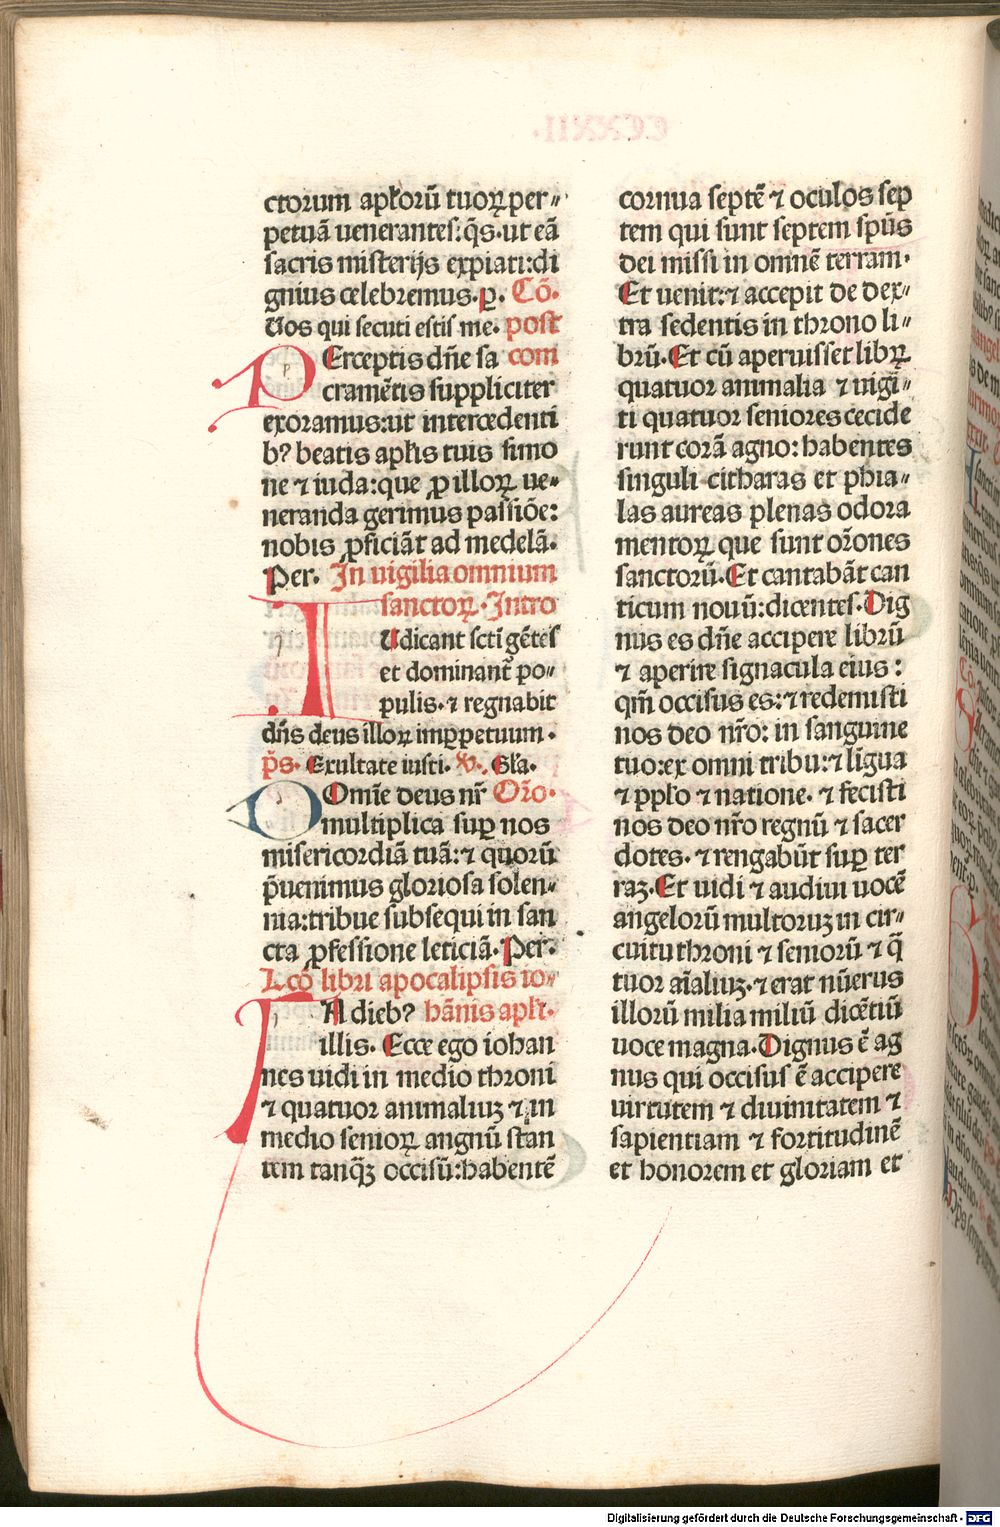 ctorum apl̃orũ tuoꝝ per⸗
petuã uenerantes: q̃s. ut eã
sacris misterijs expiati: di
gnius celebremus. p. Cõ.
Uos qui secuti estis me. post
PErceptis dñe sa com
cramẽtis suppliciter
exoramus: ut intercedenti
bꝰ beatis apl̃is tuis simo
ne ⁊ iuda: que ꝓ illoꝝ ue⸗
neranda gerimus passiõe:
nobis ꝓficiãt ad medelã.
Per. In uigilia omnium
sanctoꝝ. Intro
IUdicant scti gẽtes
et dominant᷑ po⸗
pulis. ⁊ regnabit
dñs deus illoꝝ imꝑpetuum.
p̃s. Exultate iusti. V. Gl̃a.
DOmĩe deus nr̃ Or̃o.
multiplica suꝑ nos
misericordiã tuã: ⁊ quorũ
p̃uenimus gloriosa solen⸗
nia: tribue subsequi in san
cta ꝓfessione leticiã. Per.
Lcõ libri apocalipsis io⸗
IN diebꝰ hãnis apl̃i.
illis. Ecce ego iohan
nes uidi in medio throni
⁊ quatuor animaliuꝫ ⁊ in
medio senioꝝ angnũ stan
tem tanqꝫ occisũ: habentẽ
cornua septẽ ⁊ oculos sep
tem qui sunt septem spũs
dei missi in omnẽ terram.
Et uenit: ⁊ accepit de dex⸗
tra sedentis in throno li⸗
brũ. Et cũ aperuisset libꝝ
quatuor animalia ⁊ uigĩ⸗
ti quatuor seniores cecide
runt corã agno: habentes
singuli citharas et phia⸗
las aureas plenas odora
mentoꝝ que sunt or̃ones
sanctorũ. Et cantabãt can
ticum nouũ: dicentes. Dig
nus es dñe accipere librũ
⁊ aperire signacula eius:
qm̃ occisus es: ⁊ redemisti
nos deo nr̃o: in sanguine
tuo: ex omni tribu: ⁊ lĩgua
⁊ ppl̃o ⁊ natione. ⁊ fecisti
nos deo nr̃o regnũ ⁊ sacer
dotes. ⁊ rengabũt suꝑ ter
raꝫ. Et uidi ⁊ audiui uocẽ
angelorũ multoruꝫ in cir⸗
cuitu throni ⁊ seniorũ ⁊ q̃
tuor aĩaliuꝫ. ⁊ erat nũerus
illorũ milia miliũ dicẽtiũ
uoce magna. Dignus ẽ ag
nus qui occisus ẽ accipere
uirtutem ⁊ diuinitatem ⁊
sapientiam ⁊ fortitudinẽ
et honorem et gloriam et
Digitalisierung gefördert durch die Deutsche Forschungsgemeinschaft - DFG